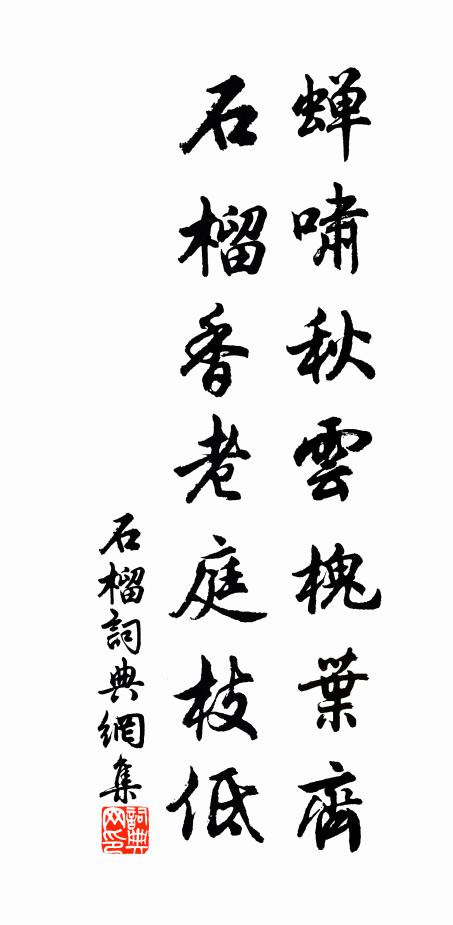 蝉嘯秋雲槐葉齊
石榴香老庭枝低
石榴詞典網集
詞典网印